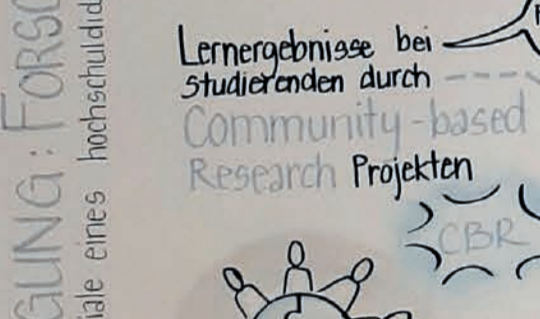 GUNG: FORSC
iale eines hochschuldid
Lernergebnisse bei
studierenden durch
Community-based
Research Projekten
CBR